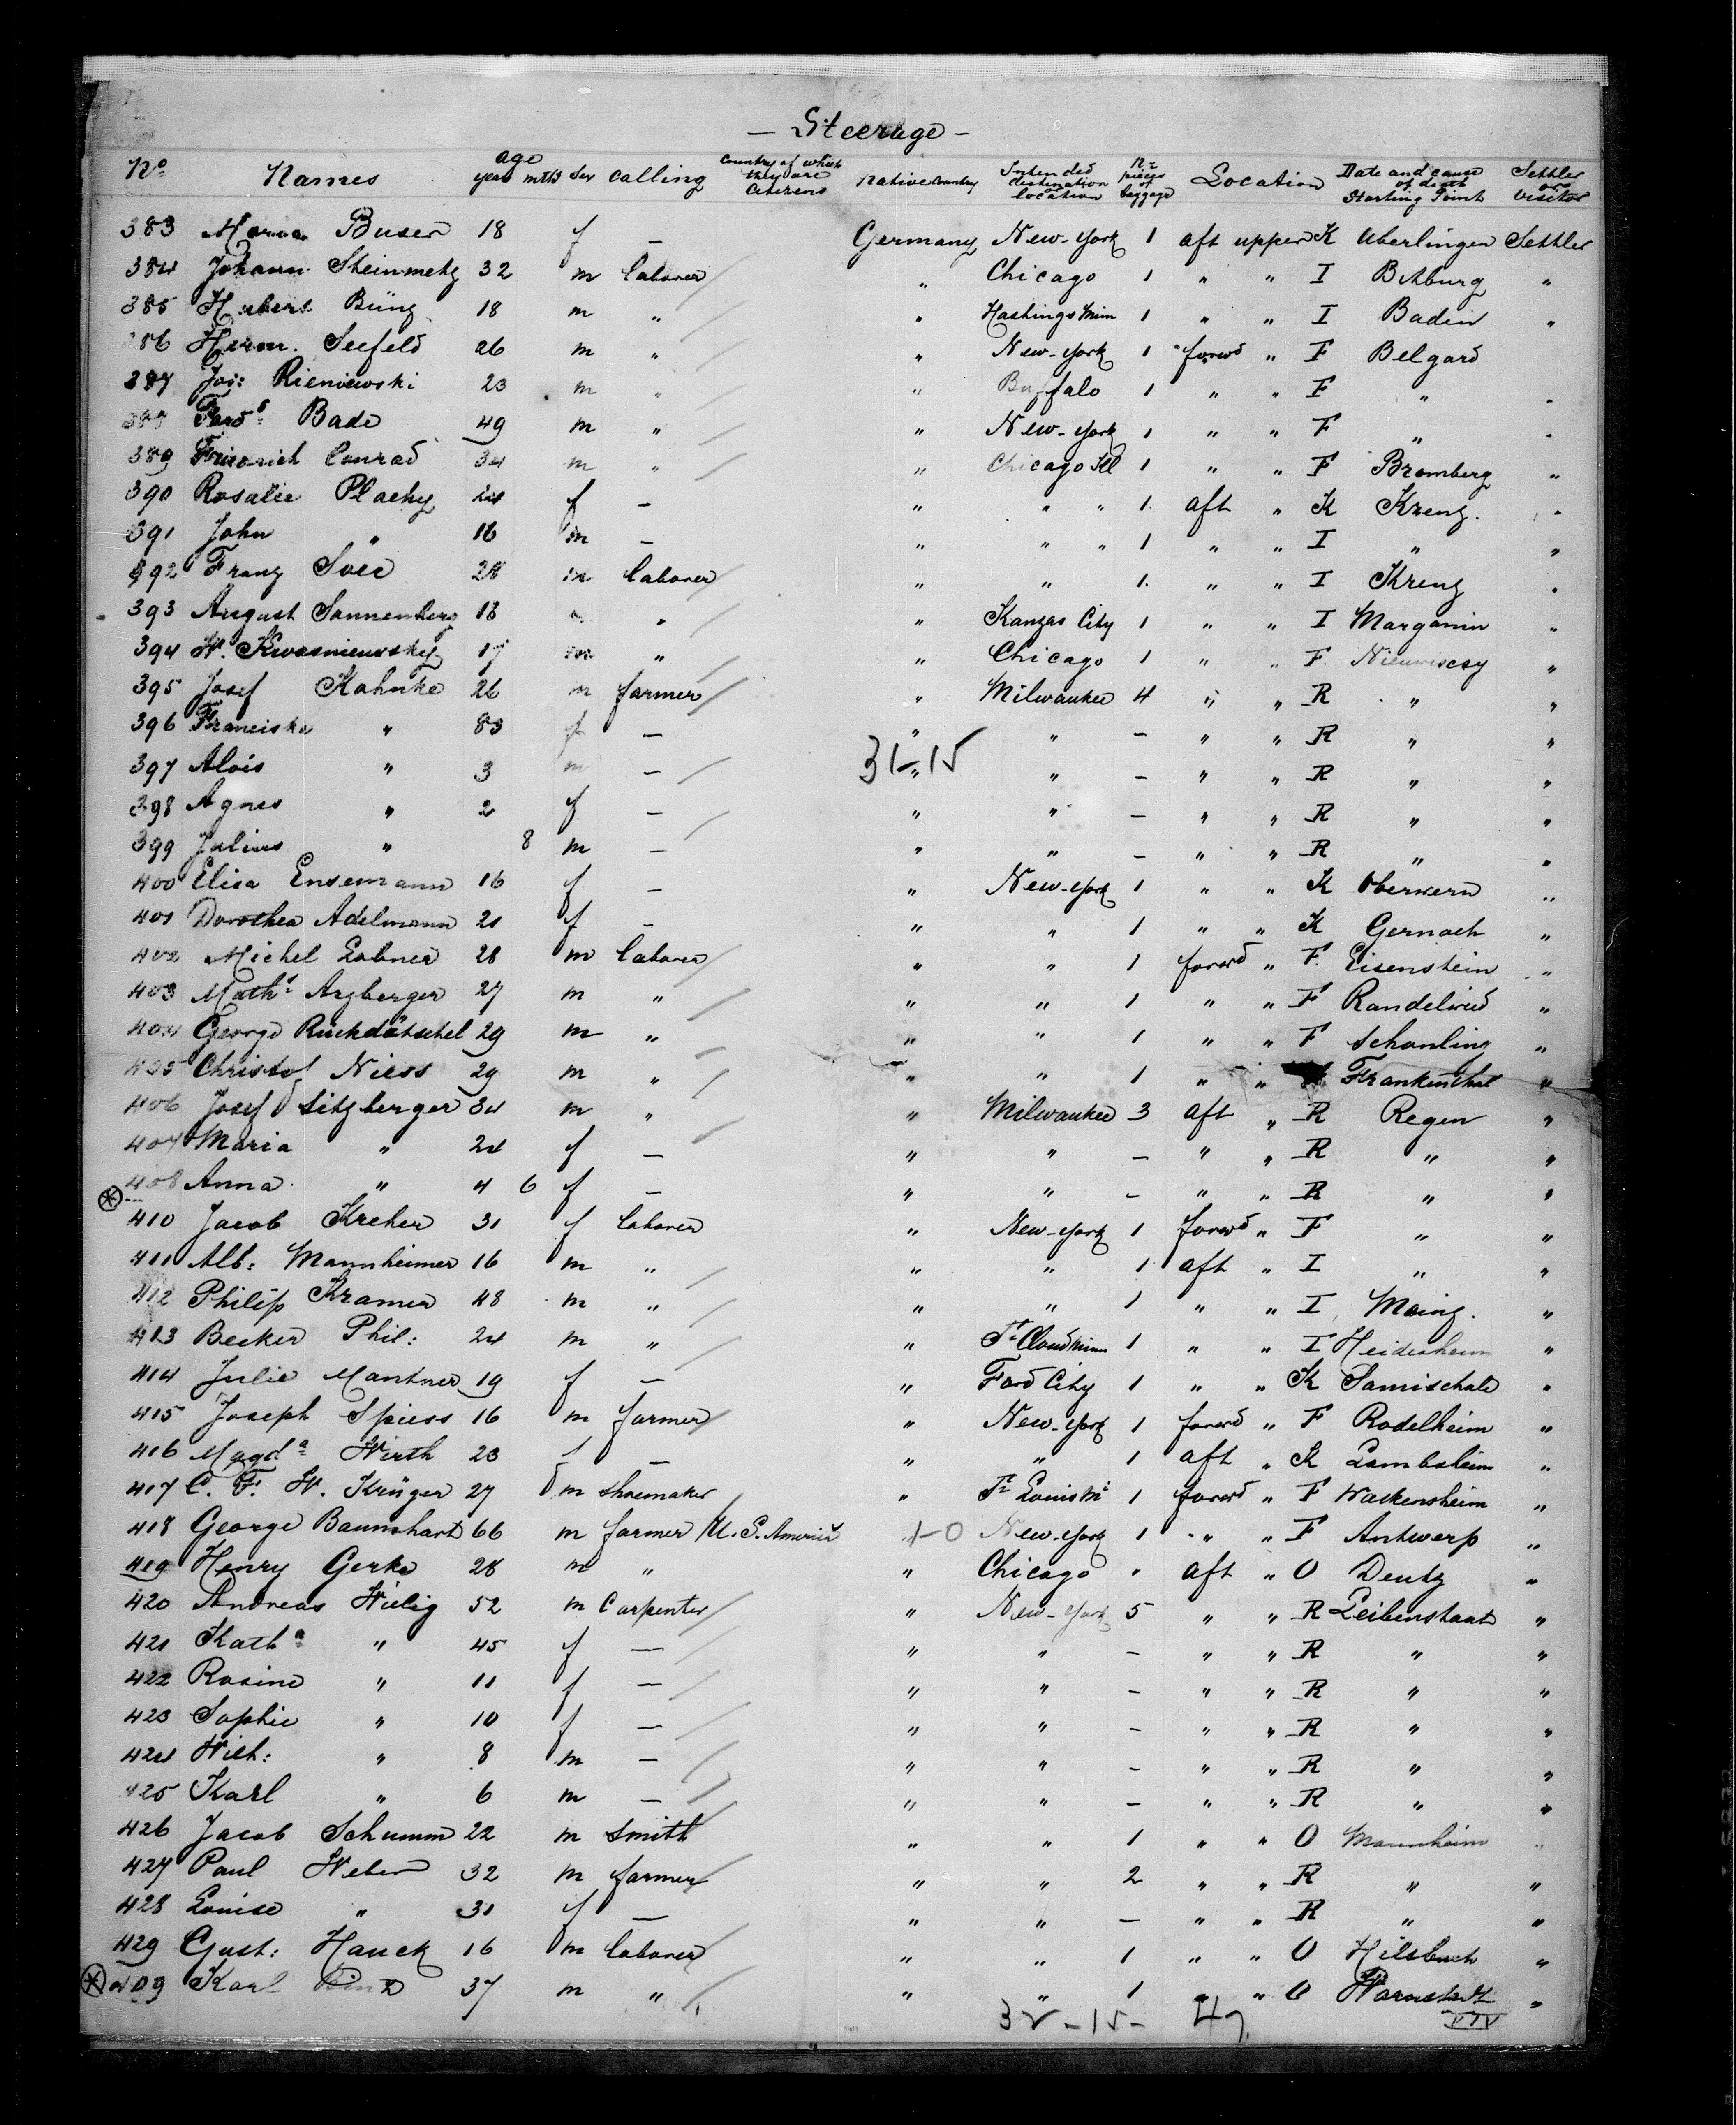 — Steerage —
No Names age years mths Sex Calling Country of which they are Citizens Native Country Intended destination location No pieces of baggage Location Date and cause of death Starting Point Settler or Visitor
383 Maria Buser 18 f — Germany New-York 1 aft upper K Uberlingen Settler
384 Johann Steinmetz 32 m laborer " Chicago 1 " " I Bitburg "
385 Hubert Büng 18 m " " Hastings Minn 1 " " I Badin "
386 Herm. Seefeld 26 m " " New-York 1 forwd " F Belgard
387 Jos: Rieniewski 23 m " " Buffalo 1 " " F " "
388 Ferd: Bade 49 m " " New-York 1 " " F " "
389 Friedrich Conrad 34 m " " Chicago Ill 1 " " F Bromberg "
390 Rosalie Plachy 24 f — " " " 1 aft " K Kreuz. "
391 John " 16 m — " " " 1 " " I " "
392 Franz Svec 28 m laborer " " 1 " " I Kreuz "
393 August Sonnenberg 18 " " " Kanzas City 1 " " I Margonin "
394 W. Kwasniewsky 17 m " " Chicago 1 " " F "
395 Josef Kahnke 26 m farmer " Milwaukee 4 " " R " "
396 Franciska " 83 f — " " — " " R " "
397 Alois " 3 m — 31-15 " " — " " R " "
398 Agnes " 2 f — " " — " " R " "
399 Julius " 8 m — " " — " " R " "
400 Elisa Ensemann 16 f — " New-York 1 " " K "
401 Dorothea Adelmann 21 f — " " 1 " " K Gernach "
402 Michel Lobner 28 m laborer " " 1 forwd " F Eisenstein "
403 Math: Arzberger 27 m " " " 1 " " F "
404 George Rückdätschel 29 m " " " 1 " " F Schonling "
405 Christof Niess 29 m " " " 1 " " Frankenthal "
406 Josef Sitzberger 34 m " " Milwaukee 3 aft " R Regen "
407 Maria " 24 f — " " — " " R " "
408 Anna " 4 6 f — " " — " " R " "
410 Jacob Kreher 31 f laborer " New-York 1 forwd " F " "
411 Alb: Mannheimer 16 m " " " 1 aft " I " "
412 Philip Kramer 48 m " " " 1 " " I Mainz. "
413 Becker Phil: 24 m " " St Cloud Minn 1 " " I "
414 Julie Mantner 19 f — " Ford City 1 " " K "
415 Joseph Spiess 16 m farmer " New-York 1 forwd " F Rodelheim "
416 Magda Wirth 23 f — " " 1 aft " K Lambsheim "
417 C. F. W. Krüger 27 m shoemaker " St Louis Mi 1 forwd " F Wackensheim "
418 George Baunshart 66 m farmer U.S. America 1-0 New-York 1 " " F Antwerp "
419 Henry Gerke 28 m " " Chicago " aft " O Deutz "
420 Andreas Wielig 52 m Carpenter " New-York 5 " " R Leibenstaat "
421 Katha " 45 f — " " — " " R " "
422 Rosine " 11 f — " " — " " R " "
423 Sophie " 10 f — " " — " " R " "
424 Wilh: " 8 m — " " — " " R " "
425 Karl " 6 m — " " — " " R " "
426 Jacob Schumm 22 m smith " " 1 " " O Mannheim "
427 Paul Weber 32 m farmer " " 2 " " R " "
428 Louise " 31 f — " " — " " R " "
429 Gust: Hauck 16 m laborer " " 1 " " O Hilsbach "
409 Karl 37 m " " " 1 " " O "
32-15- 47